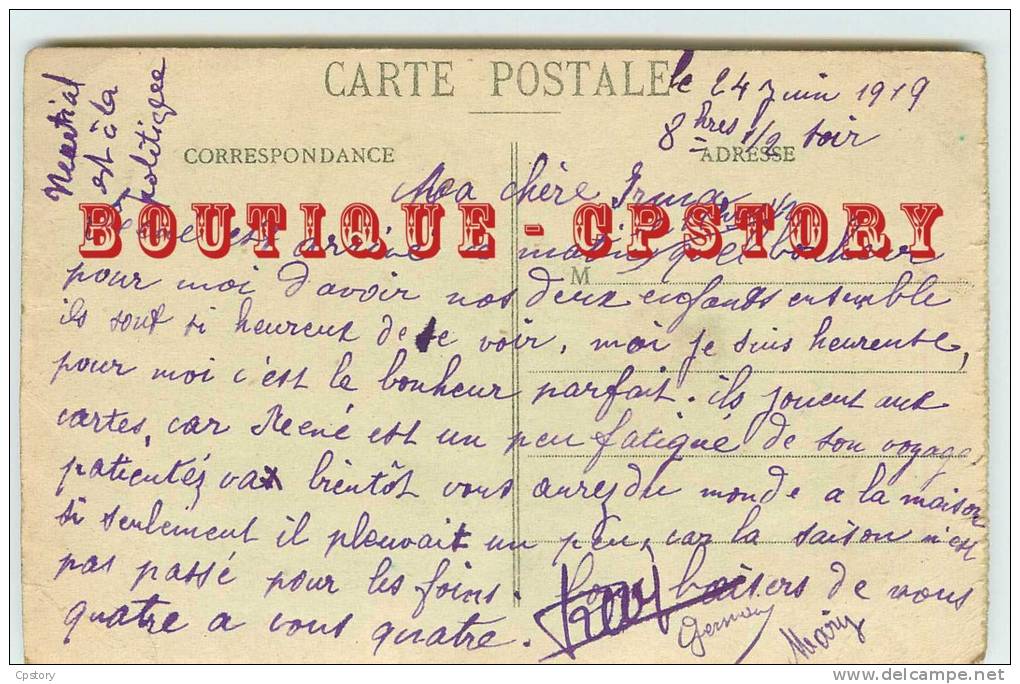 CARTE POSTALE
le 24 Juin 1919
8 hres 1/2 soir
CORRESPONDANCE
ADRESSE
est à la
politique
Ma chère Irma
BOUTIQUE - CPSTORY
est arrivé ce matin quel bonheur
M
pour moi d'avoir nos deux enfants ensemble
ils sont si heureux de se voir, moi je suis heureuse,
pour moi c'est le bonheur parfait. ils jouent aux
cartes, car René est un peu fatigué de son voyage,
patientéz va bientôt vous aurez du monde a la maison
si seulement il pleuvait un peu, car la saison n'est
pas passé pour les foins. bons baisers de nous
quatre a vous quatre.
Germany
Mary
Cpstory
delcampe.net